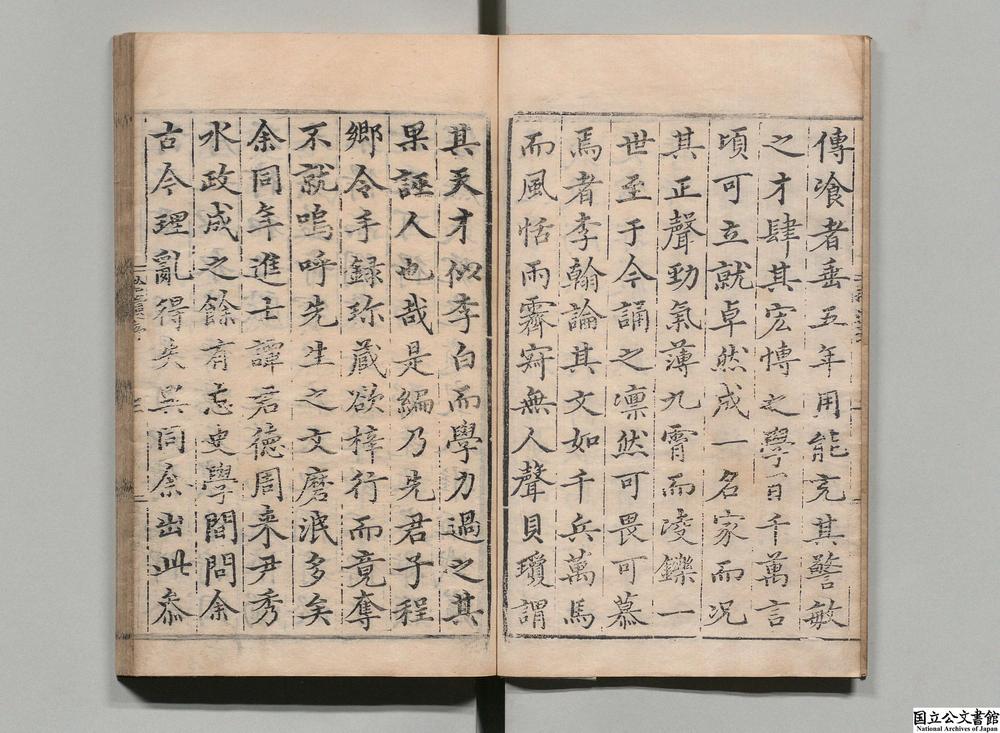 傳飡者垂五年用能充其警敏
之才肆其宏博之學一日千萬言
頃可立就卓然成一名家而況
其正聲勁氣薄九霄而凌鑠一
世至于今誦之凛然可畏可慕
焉者李翰論其文如千兵萬馬
而風恬雨霽寂無人聲貝瓊謂
其天才似李白而學力過之其
果誣人也哉是編乃先君子程
鄉令手録珎藏欲梓行而竟奪
不就嗚呼先生之文磨泯多矣
余同年進士譚君徳周来尹秀
水政成之餘有志史學間問余
古今理亂得失異同余出此忝
国立公文書館
National Archives of Japan